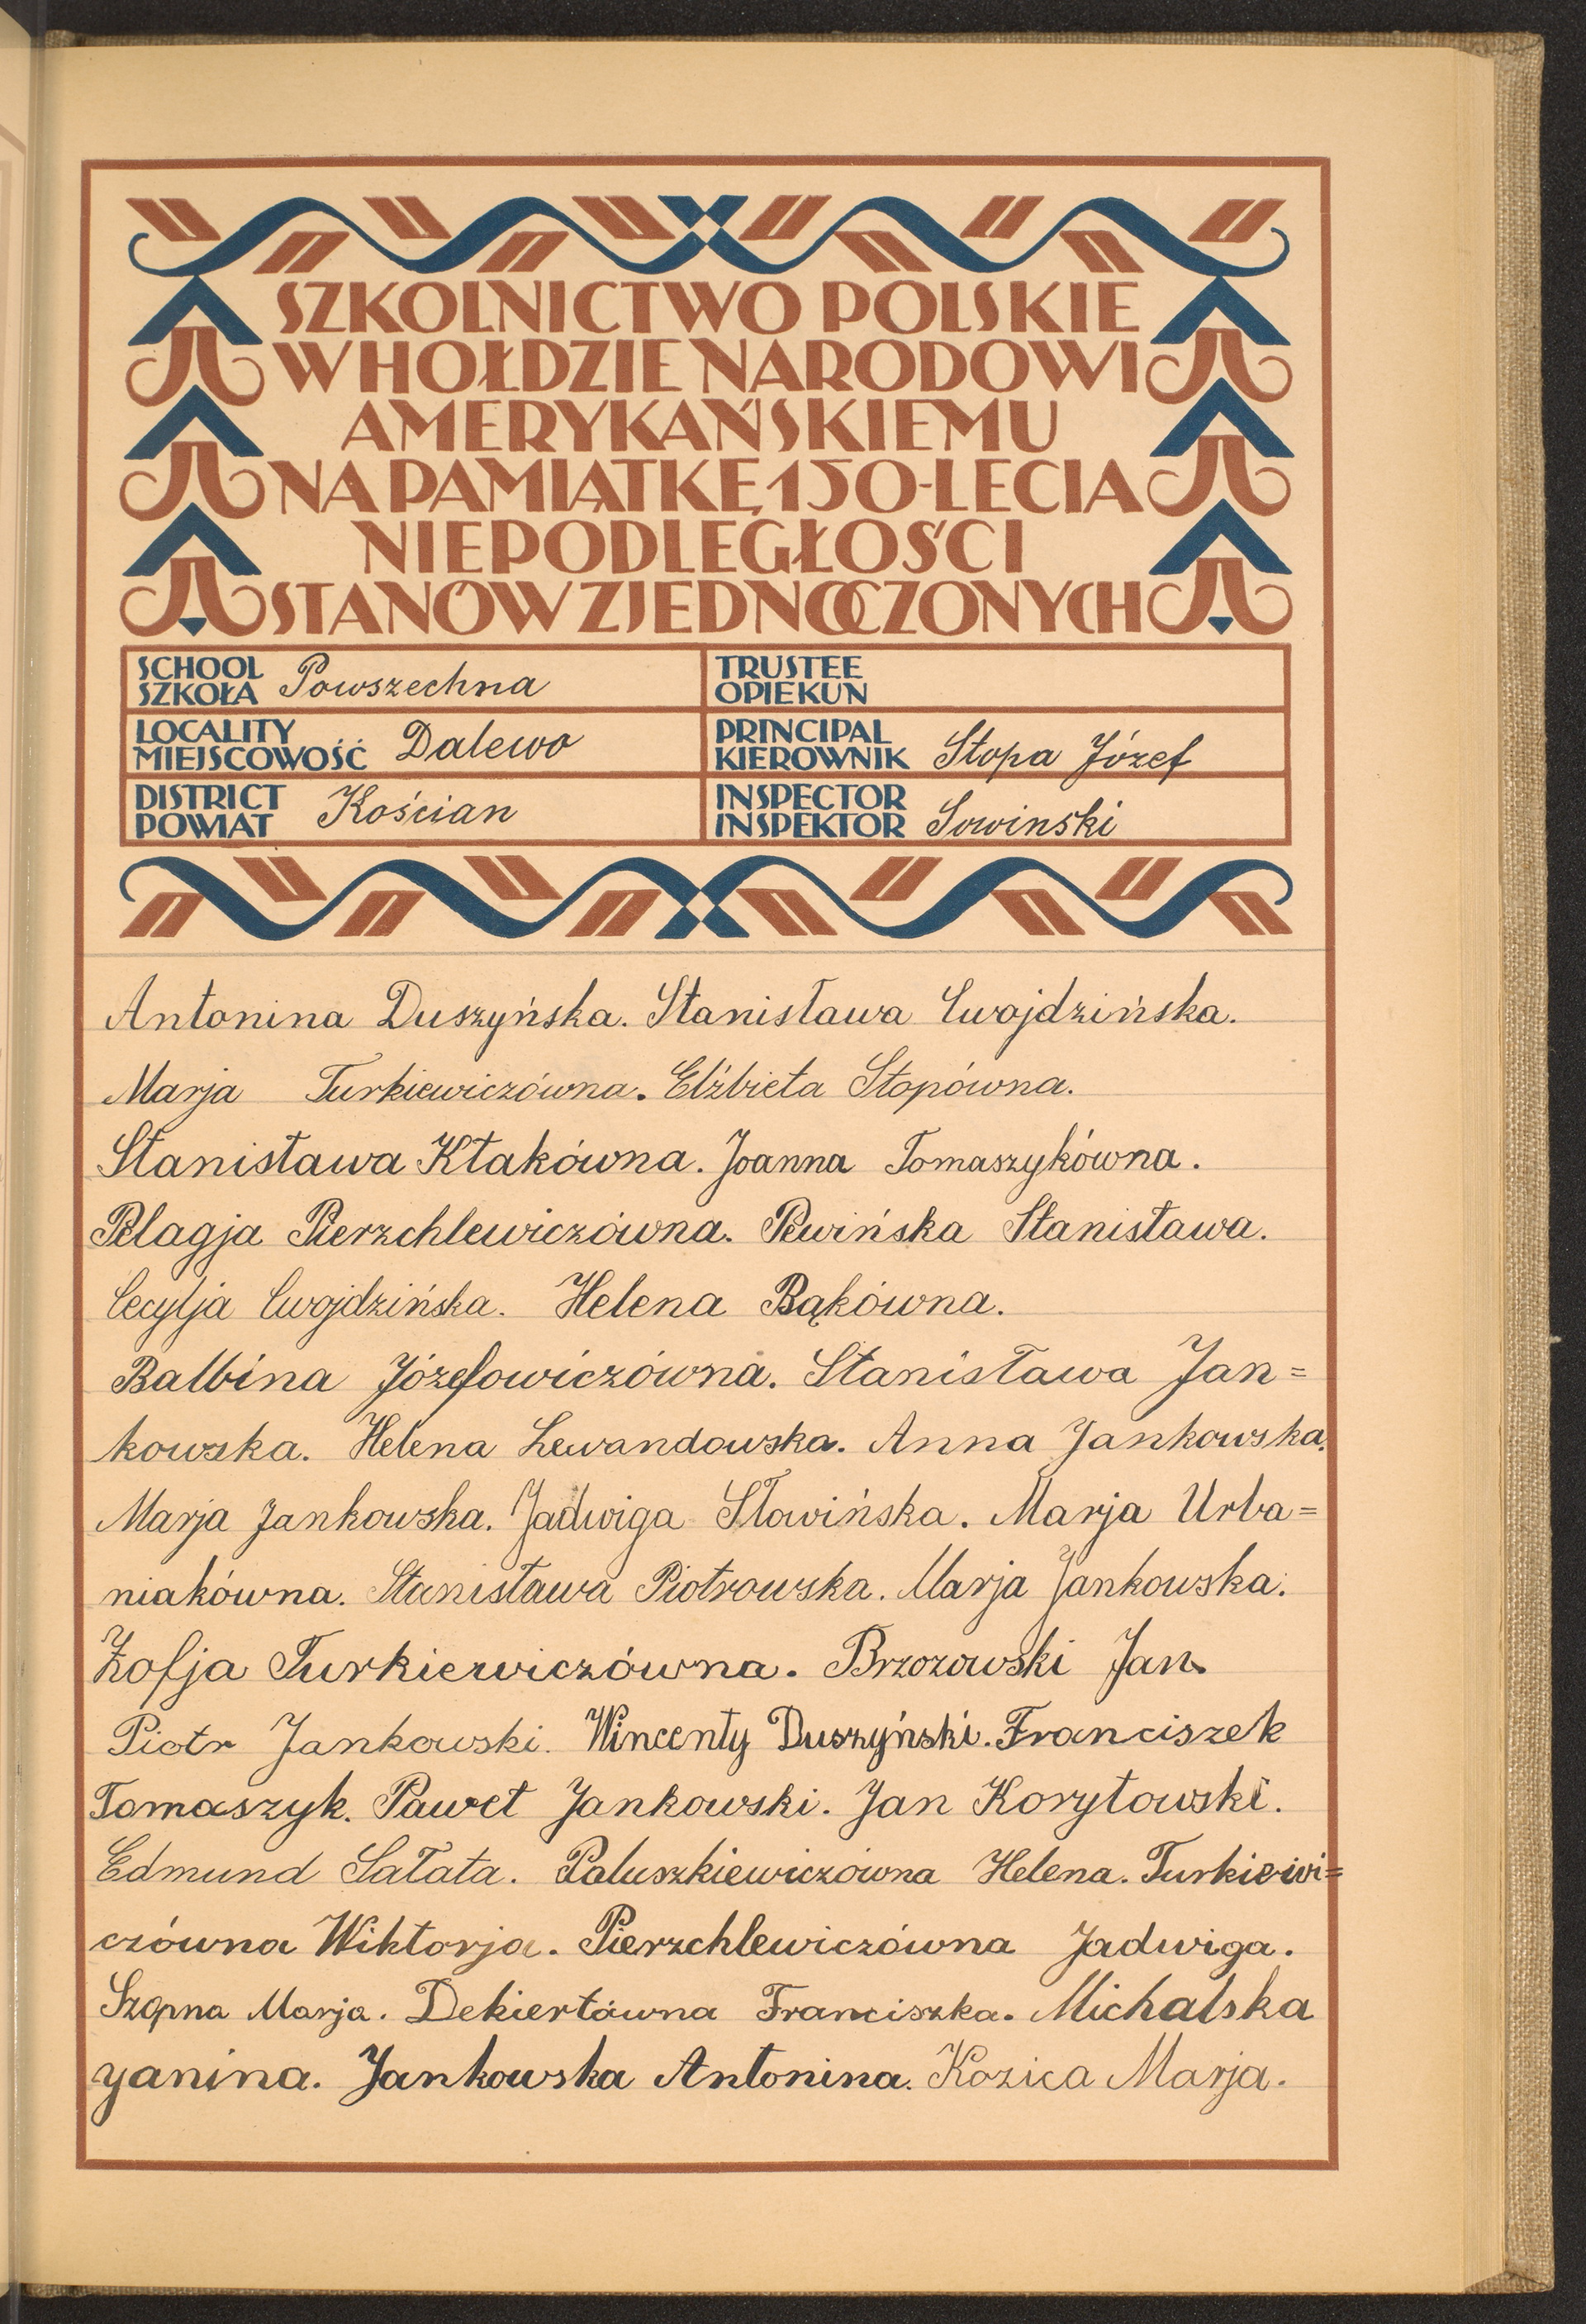 SZKOLNICTWO POLSKIE
W HOŁDZIE NARODOWI
AMERYKAŃSKIEMU
NA PAMIĄTKĘ 150-LECIA
NIEPODLEGŁOŚCI
STANÓW ZJEDNOCZONYCH
SCHOOL
SZKOŁA Powszechna
TRUSTEE
OPIEKUN
LOCALITY
MIEJSCOWOŚĆ Dalewo
PRINCIPAL
KIEROWNIK Stopa Józef
DISTRICT
POWIAT Kościan
INSPECTOR
INSPEKTOR Sowinski
Antonina Duszyńska. Stanisława Cwojdzińska.
Marja Turkiewiczówna. Elżbieta Stopówna.
Stanisława Kłakówna. Joanna Tomaszykówna.
Pelagja Pierzchlewiczówna. Pewińska Stanisława.
Cecylja Cwojdzińska. Helena Bąkówna.
Balbina Józefowiczówna. Stanisława Jan=
kowska. Helena Lewandowska. Anna Jankowska.
Marja Jankowska. Jadwiga Sławińska. Marja Urba=
niakówna. Stanisława Piotrowska. Marja Jankowska.
Zofja Turkiewiczówna. Brzozowski Jan.
Piotr Jankowski. Wincenty Duszyński. Franciszek
Tomaszyk. Paweł Jankowski. Jan Korytowski.
Edmund Sałata. Paluszkiewiczówna Helena. Turkiewi=
czówna Wiktorja. Pierzchlewiczówna Jadwiga.
Szopna Marja. Dekiertówna Franciszka. Michalska
Janina. Jankowska Antonina. Kozica Marja.